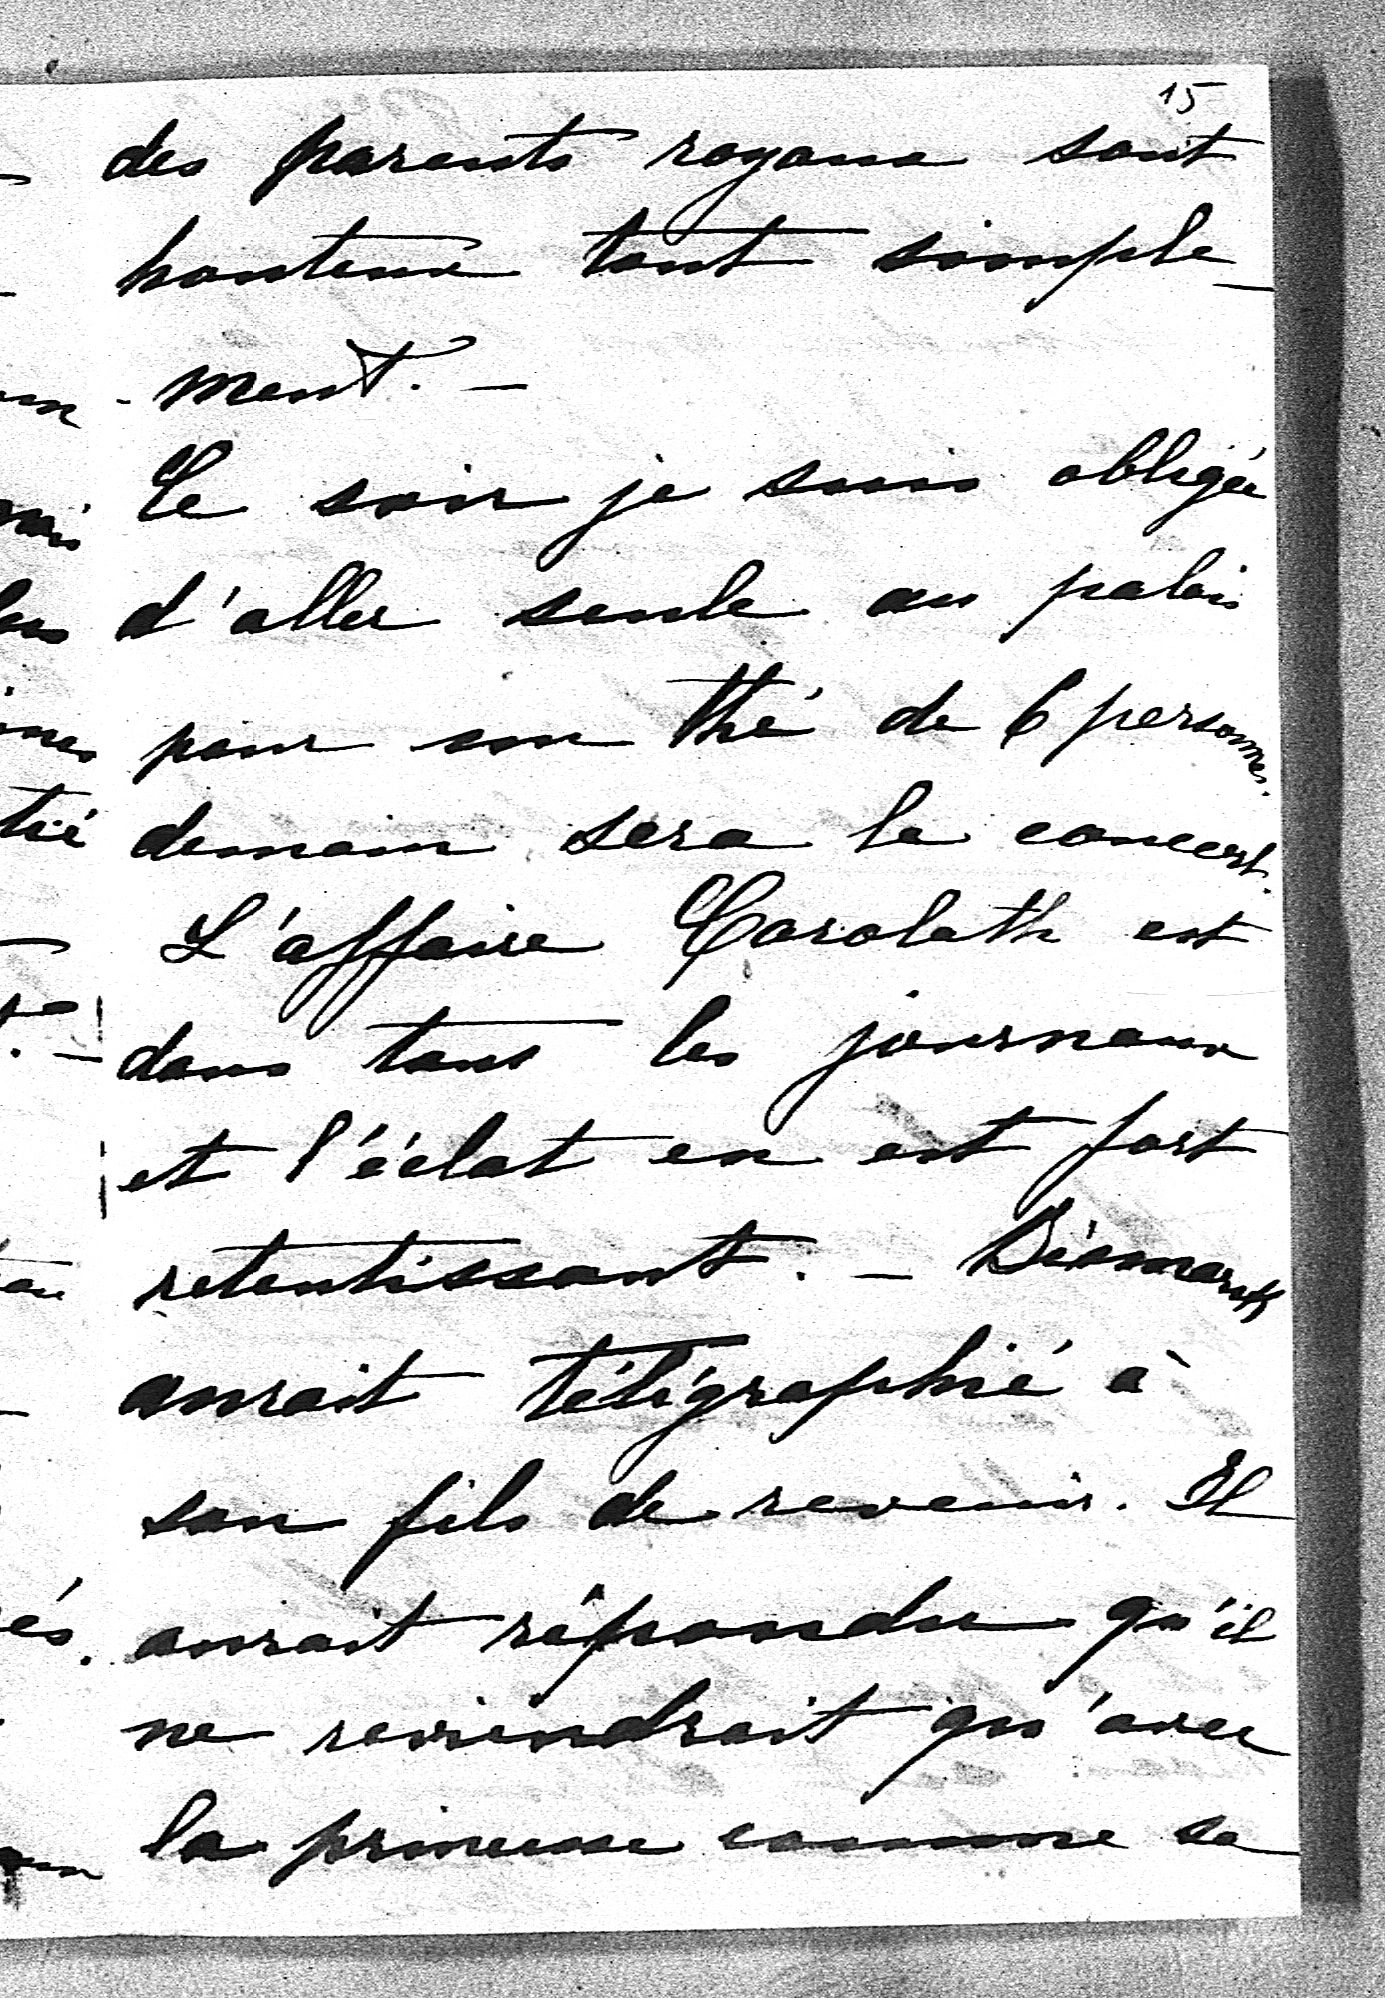 15
des parents royaux sont
honteux tout simple-
-ment. -
Le soir je suis obligée
d'aller seule au palais
pour un thé de 6 personnes.
demain sera le concert.
L'affaire Carolath est
dans tous les journaux
et l'éclat en est fort
retentissant. - Bismark
aurait télégraphié à
son fils de revenir. Il
aurait répondu qu'il
ne reviendrait qu'avec
la princesse comme sa